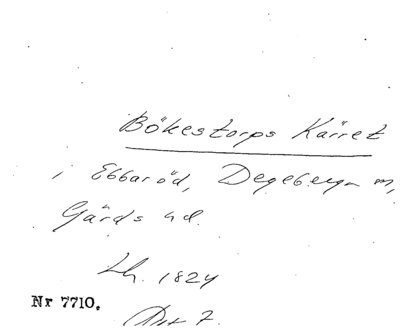 Bökestorps Kärret
i Ebbaröd, Degeberga m,
Gärds hd.
Lh. 1824
Nr 7710.